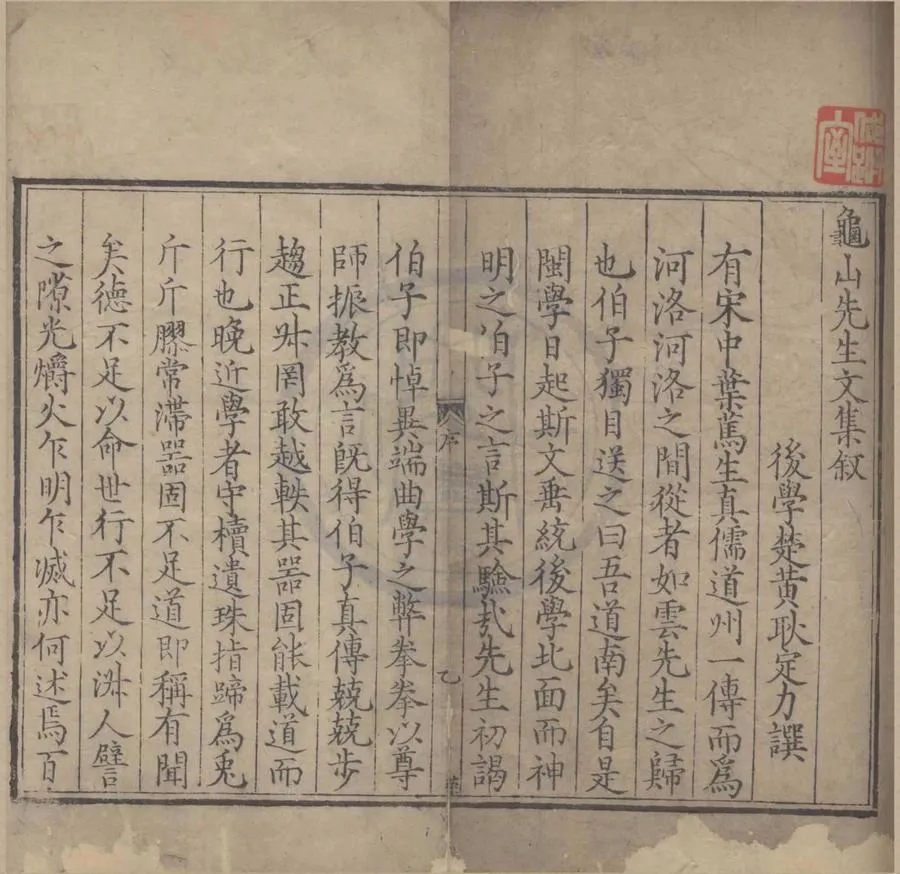 龜山先生文集叙
後學楚黃耿定力譔
有宋中葉篤生真儒道州一傳而爲
河洛河洛之間從者如雲先生之歸
也伯子獨目送之曰吾道南矣自是
閩學日起斯文垂統後學北面而神
明之伯子之言斯其驗㢤先生初謁
序
乙
伯子即悼異端曲學之弊拳拳以尊
師振教爲言旣得伯子真傳兢兢步
趨正井罔敢越軼其器固能載道而
行也晚近學者守櫝遺珠指蹄爲兎
斤斤膠常滯器固不足道即稱有聞
矣德不足以命世行不足以淑人譬
之隙光爝火乍明乍滅亦何述焉百